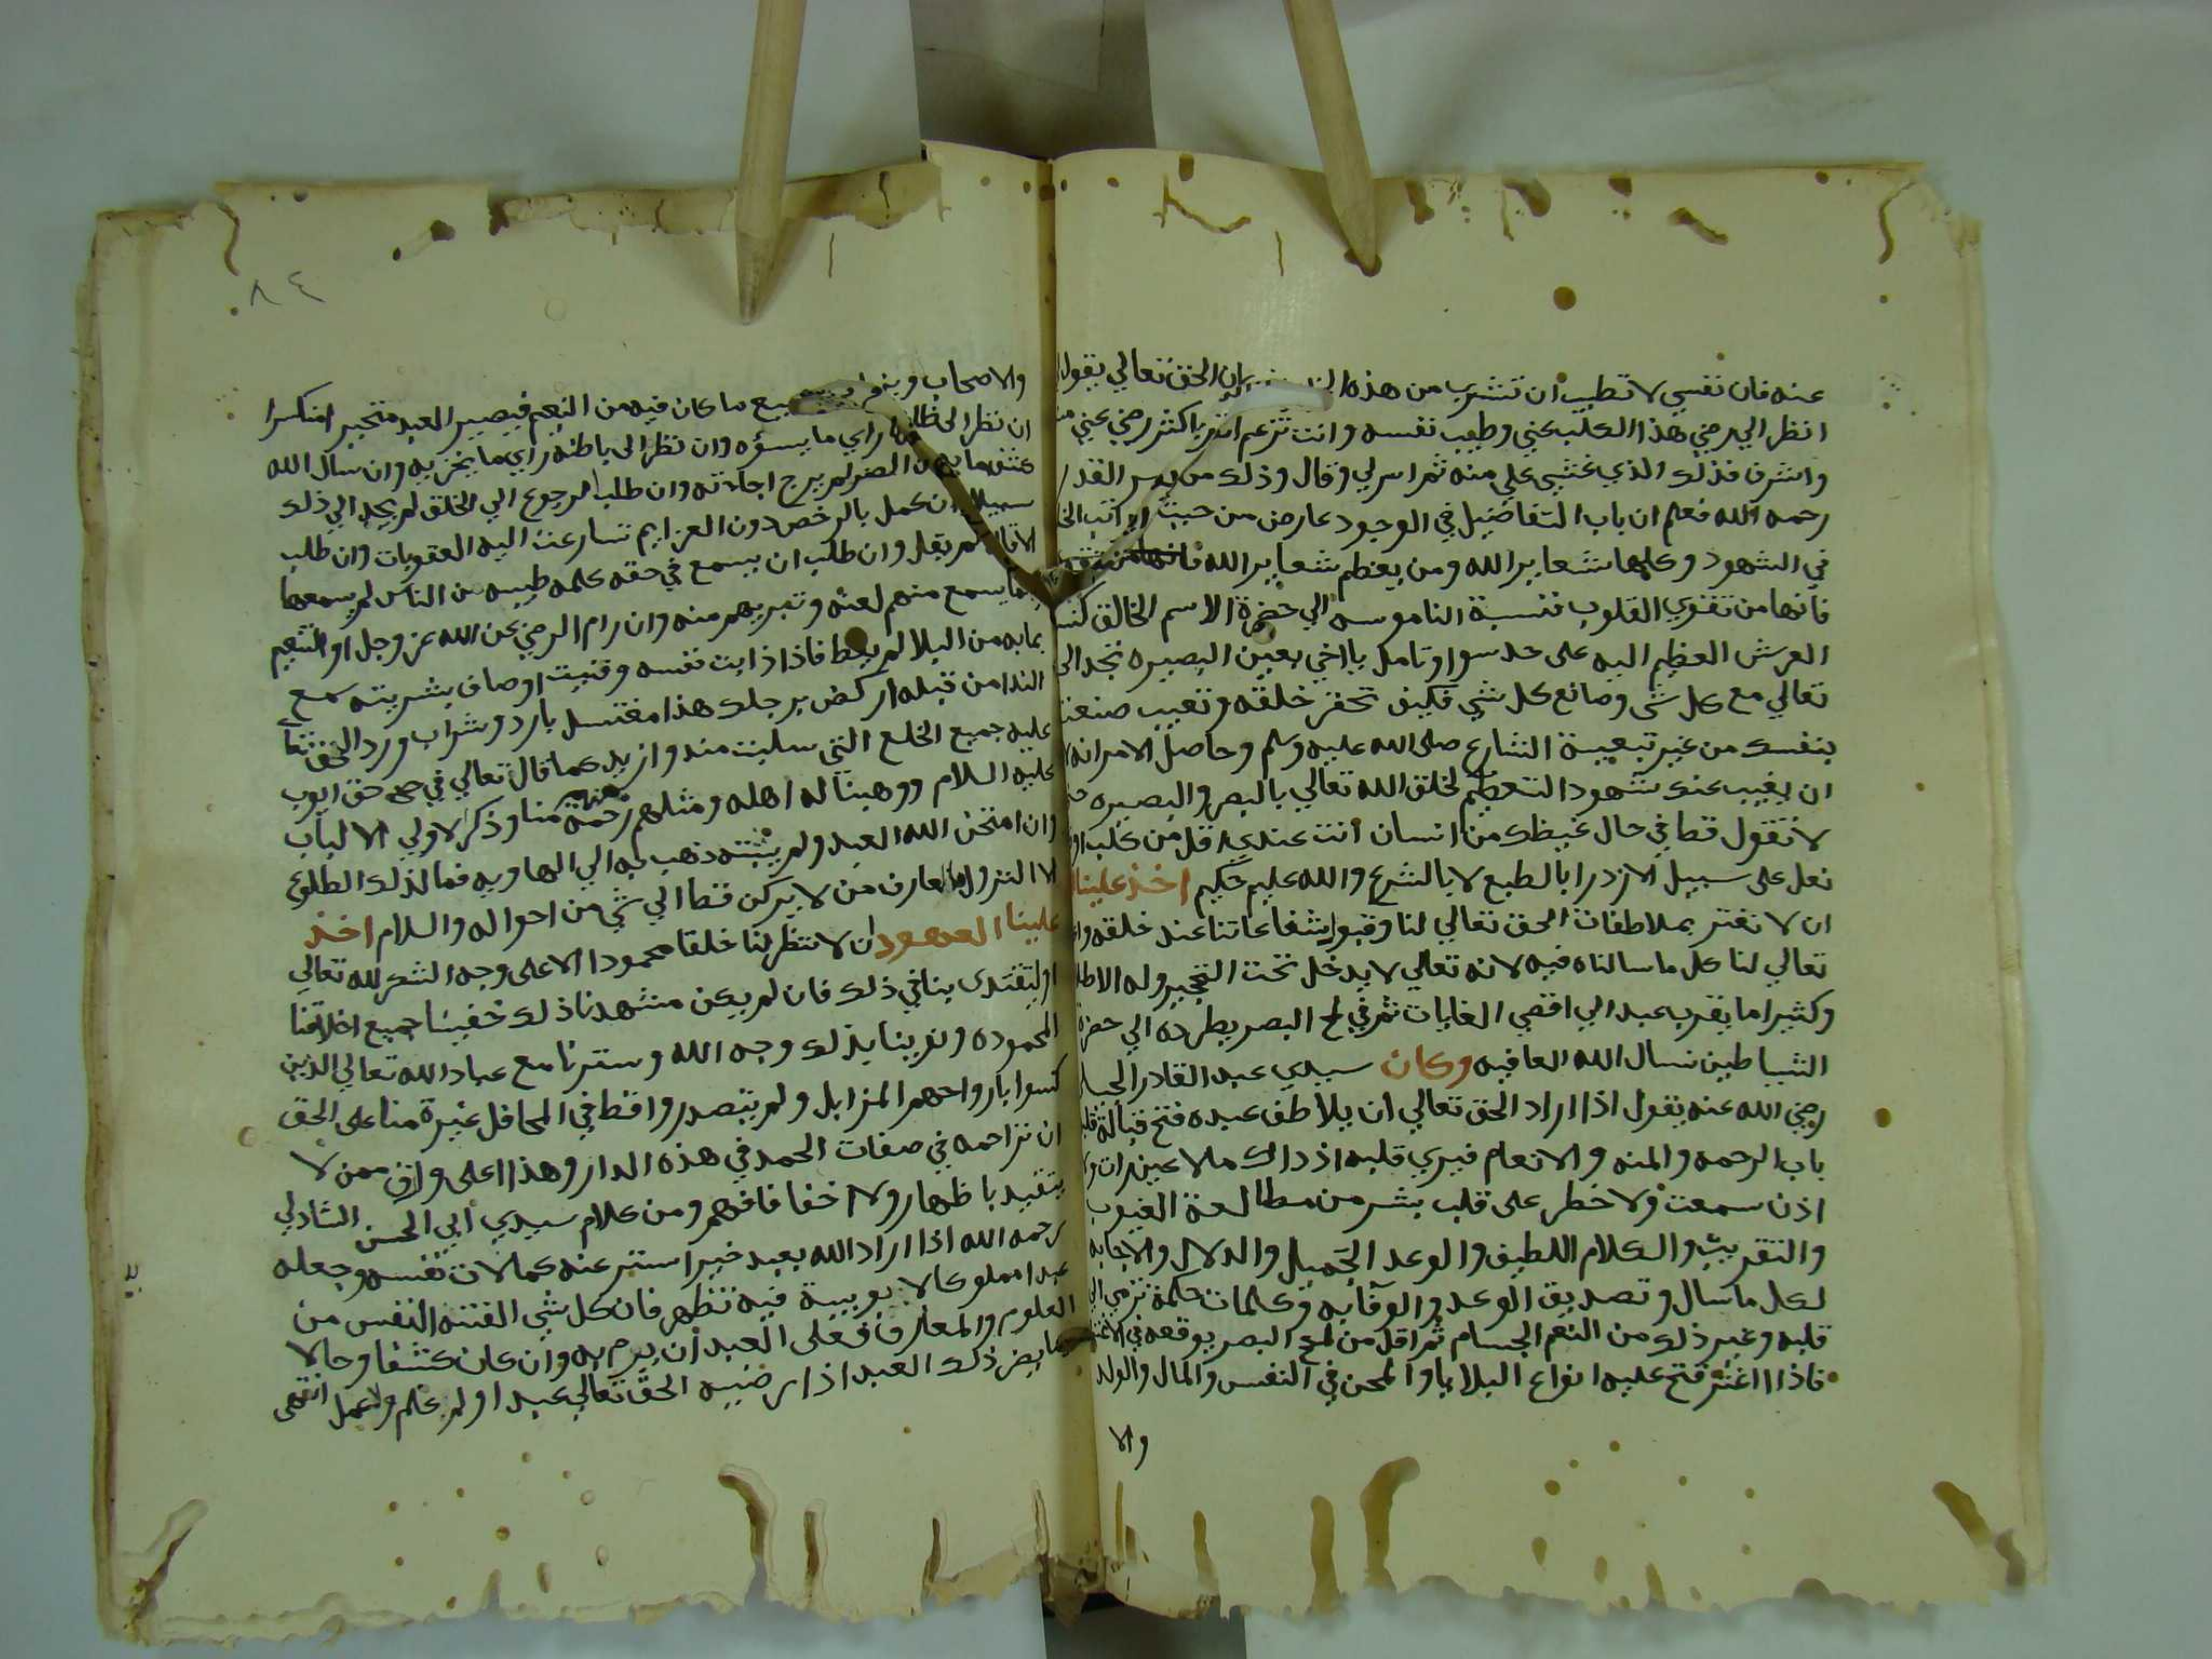 عنه فان نفسي لا تطيب ان تشرب من هذه بان الحق تعالي يقول
انظر الي رضي هذا الكلب عني وطيب نفسه وانت تزعم اكثر رضي عني
واشرف فذلك الذي غشي علي منه ثم اسر لي وقال وذلك من سر القدر
رحمه الله فعلم ان باب التفاضيل في الوجود عارض من حيث
في الشهود وكلها شعاير الله ومن يعظم شعاير الله
فانها من تقوي القلوب فنسبة الناموسه الي حضرة الاسم الخالق كنسبة
العرش العظيم اليه على حد سوا وتامل يا اخي بعين البصيره تجد الحق
تعالي مع كل شي وصانع كل شي فكيف تحقر خلقه وتعيب صنعته
بنفسك من غير تبعية الشارع صلى الله عليه وسلم وحاصل الامر انه
ان يغيب عنك شهود التعظيم لخلق الله تعالي بالبصر والبصيره
لا تقول قط في حال غيظك من انسان انت عندي اقل من كلب او
نعل على سبيل الازدرا بالطبع لا بالشرع والله عليم حكيم اخذ علينا
ان لا نغتر بملاطفات الحق تعالي لنا وقبول شفاعاتنا عند خلقه
تعالي لنا كل ما سالناه فيه لانه تعالي لا يدخل تحت التحجير وله الاطلاق
وكثيرا ما يقرب عبد الي اقصي الغايات ثم في لمح البصر يطرده الي حضرة
الشياطين نسال الله العافيه وكان سيدي عبد القادر الجيلي
رضي الله عنه يقول اذا اراد الحق تعالي ان يلاطف عبده فتح قبالة قلبه
باب الرحمه والمنه والانعام فيري قلبه اذ ذاك ما لا عين رات ولا
اذن سمعت ولا خطر على قلب بشر من مطالعة الغيوب
والتقريب والكلام اللطيف والوعد الجميل والدلال والاجابه
لكل ما سال وتصديق الوعد والوفآ به وكلمات حكمة ترمي الي
قلبه وغير ذلك من النعم الجسام ثم اقل من لمح البصر يوقعه في
فاذا اغتر فتح عليه انواع البلايا والمحن في النفس والمال والولد
والا
٨٤
والاصحاب ما كان فيه من النعيم فيصير العبد متحير امنكسرا
ان نظر الى ظاهره راي ما يسؤه وان نظر الى باطنه راي ما يحزنه وان سال الله
كشف ما به من الضر لم يرج اجابته وان طلب الرجوع الي الخلق لم يجد الي ذلك
سبيلا ان عمل بالرخص دون العزايم تسارعت اليه العقوبات وان طلب
الاقاله لم يقل وان طلب ان يسمع في حقه كلمه طيبه من الناس لم يسمعها
انما يسمع منهم لعنه وتبريهم منه وان رام الرضي عن الله عز وجل او التنعيم
بما به من البلا لم يعط فاذا ذابت نفسه وفنيت اوصاف بشريته سمع
الندا من قبله اركض برجلك هذا مغتسل بارد وشراب ورد الحق تعالي
عليه جميع الخلع التي سلبت منه وازيد كما قال تعالي في حق ايوب
عليه السلام ووهبنا له اهله ومثلهم معهم رحمة منا وذكر لاولي الالباب
وان امتحن الله العبد ولم يثبته ذهب به الي الهاويه فما لذلك الطلوع
الا النزول فالعارف من لا يركن قط الي شي من احواله والسلام اخذ
علينا العهود ان لا نظهر لنا خلقا محمودا الا على وجه الشكر لله تعالي
او ليقتدى بنا في ذلك فان لم يكن مشهدنا ذلك خفينا جميع اخلاقنا
المحموده ونوينا بذلك وجه الله وسترنا مع عباد الله تعالي الذين
كنسوا بارواحهم المزابل ولم يتصدروا قط في المحافل غيرة منا على الحق
ان نزاحمه في صفات الحمد في هذه الدار وهذا اعلى وارق ممن لا
يتقيد باظهار ولا اخفا فافهم ومن كلام سيدي ابي الحسن الشاذلي
رحمه الله اذا اراد الله بعبد خيرا ستر عنه كمالات نفسه وجعله
عبدا مملوكا لا ربوبية فيه تظهر فان كل شي الفتنه النفس من
العلوم والمعارف فعلى العبد ان يرم به وان كان كشفا وحالا
ذلك العبد اذا رضيه الحق تعالي عبدا ولم علم ولا عمل انتهى